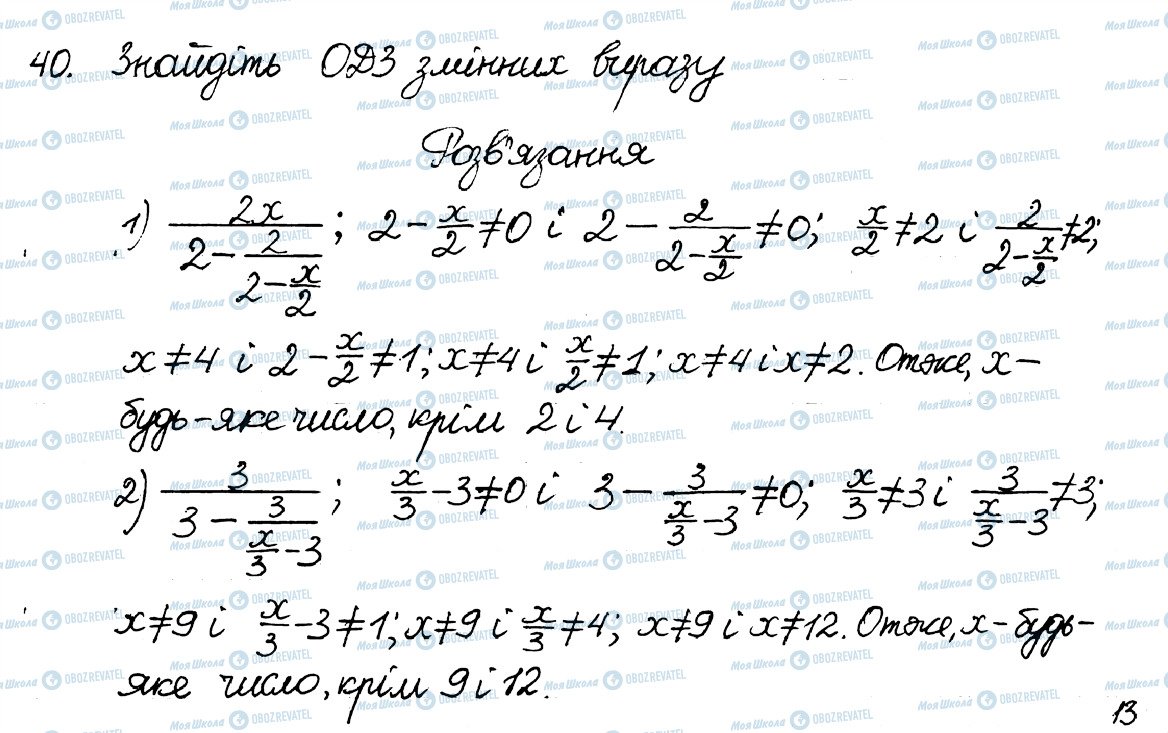 40. Знайдіть ОДЗ змінних виразу
Розв'язання
1) \frac{2x}{2-\frac{2}{2-\frac{x}{2}}}; 2-\frac{x}{2}≠0 і 2-\frac{2}{2-\frac{x}{2}}≠0; \frac{x}{2}≠2 і \frac{2}{2-\frac{x}{2}}≠2;
x≠4 і 2-\frac{x}{2}≠1; x≠4 і \frac{x}{2}≠1; x≠4 і x≠2. Отже, x-
будь-яке число, крім 2 і 4.
2) \frac{3}{3-\frac{3}{\frac{x}{3}-3}}; \frac{x}{3}-3≠0 і 3-\frac{3}{\frac{x}{3}-3}≠0; \frac{x}{3}≠3 і \frac{3}{\frac{x}{3}-3}≠3;
x≠9 і \frac{x}{3}-3≠1; x≠9 і \frac{x}{3}≠4; x≠9 і x≠12. Отже, x-будь-
яке число, крім 9 і 12.
13
Моя Школа OBOZREVATEL